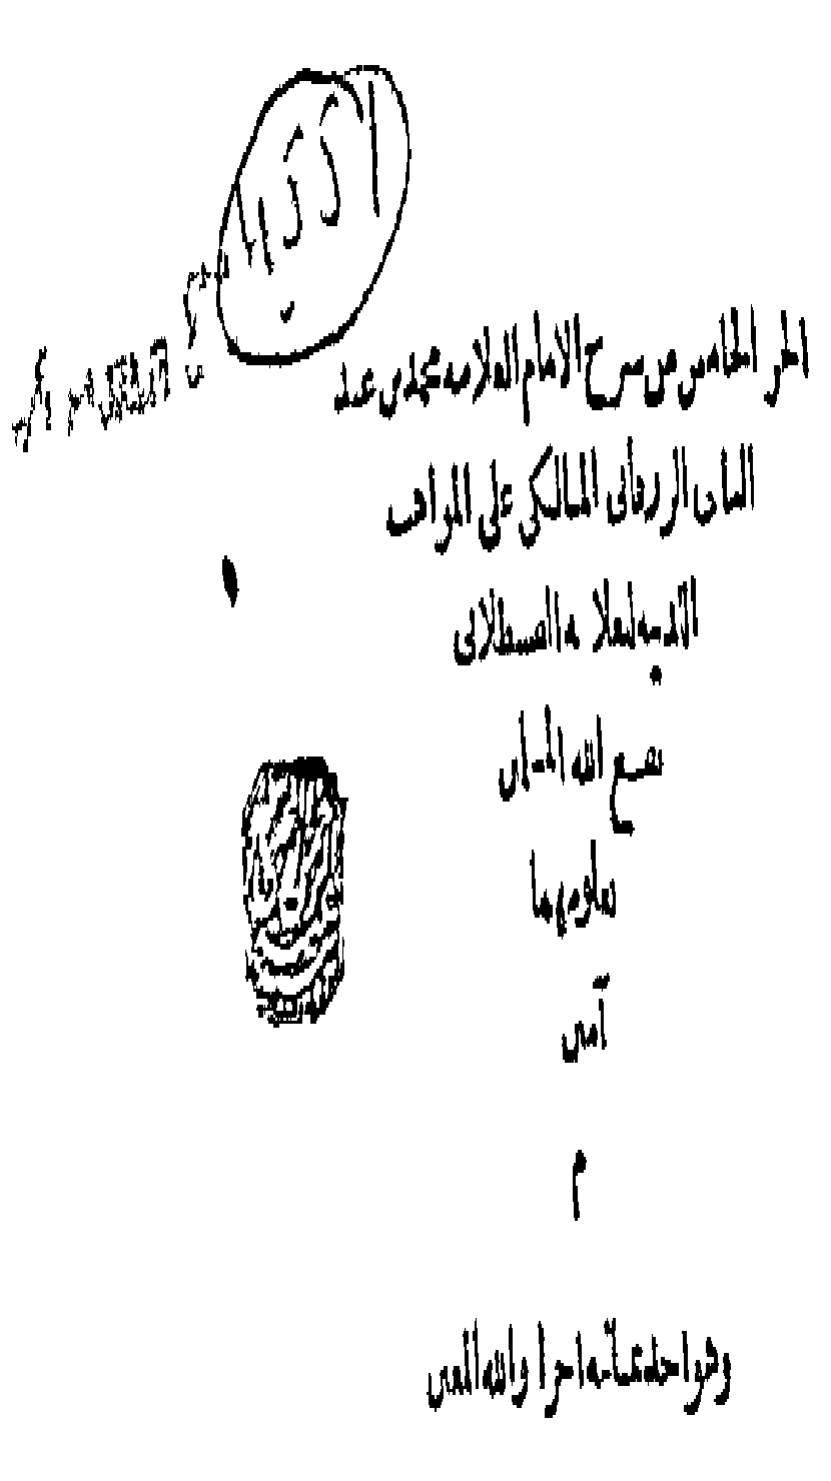 الجزء الخامس من شرح الامام العلامه محمد بن عبد
الباقى الزرقانى المالكى على المواهب
اللدنيه للعلامه القسطلانى
نفع الله المسلمين
بعلومهما
آمين
م
وهو احد ثمانيه اجزا والله المعين